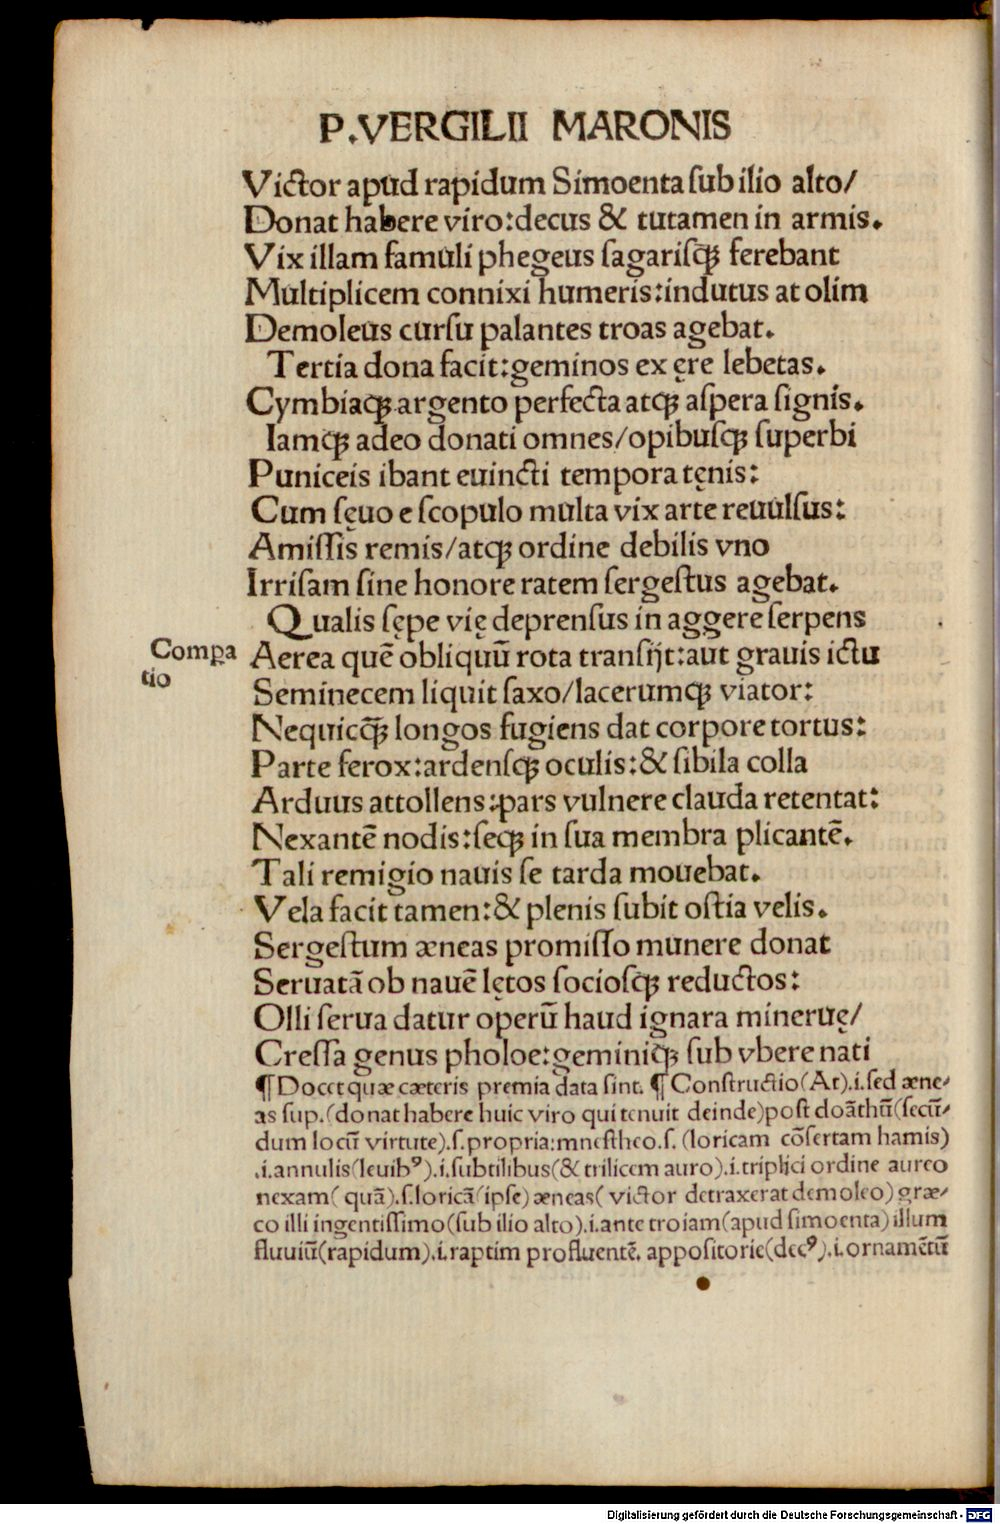 P.VERGILII MARONIS
Victor apud rapidum Simoenta ſub ilio alto/
Donat habere viro:decus & tutamen in armis.
Vix illam famuli phegeus ſagariſqꝫ ferebant
Multiplicem connixi humeris:indutus at olim
Demoleus curſu palantes troas agebat.
Tertia dona facit:geminos ex ęre lebetas.
Cymbiaqꝫ argento perfecta atqꝫ aſpera ſignis.
Iamqꝫ adeo donati omnes/opibuſqꝫ ſuperbi
Puniceis ibant euincti tempora tęnis:
Cum ſęuo e ſcopulo multa vix arte reuulſus:
Amiſſis remis/atqꝫ ordine debilis vno
Irriſam ſine honore ratem ſergeſtus agebat.
Qualis ſępe vię deprenſus in aggere ſerpens
Compa
tio
Aerea quē obliquū rota tranſijt:aut grauis ictu
Seminecem liquit ſaxo/lacerumqꝫ viator:
Nequicq̄ꝫ longos fugiens dat corpore tortus:
Parte ferox:ardenſqꝫ oculis:& ſibila colla
Arduus attollens:pars vulnere clauda retentat:
Nexantē nodis:ſeqꝫ in ſua membra plicantē.
Tali remigio nauis ſe tarda mouebat.
Vela facit tamen:& plenis ſubit oſtia velis.
Sergeſtum æneas promiſſo munere donat
Seruatā ob nauē lętos ſocioſqꝫ reductos:
Olli ſerua datur operū haud ignara mineruę/
Creſſa genus pholoe:geminiqꝫ ſub vbere nati
¶Docet quæ cæteris premia data ſint. ¶Conſtructio(At).i.ſed æne⸗
as ſup.(donat habere huic viro qui tenuit deinde)poſt doāthū(ſecū⸗
dum locū virtute).ſ.propria:mneſtheo.ſ.(loricam cōſertam hamis)
.i.annulis(leuibꝰ).i.ſubtilibus(& trilicem auro).i.triplici ordine aureo
nexam(quā).ſ.loricā(ipſe)æneas(victor detraxerat demoleo)græ⸗
co illi ingentiſſimo(ſub ilio alto).i.ante troiam(apud ſimoenta)illum
fluuiū(rapidum).i.raptim profluentē. appoſitorie(decꝰ).i.ornamētū
Digitalisierung gefördert durch die Deutsche Forschungsgemeinschaft - DFG